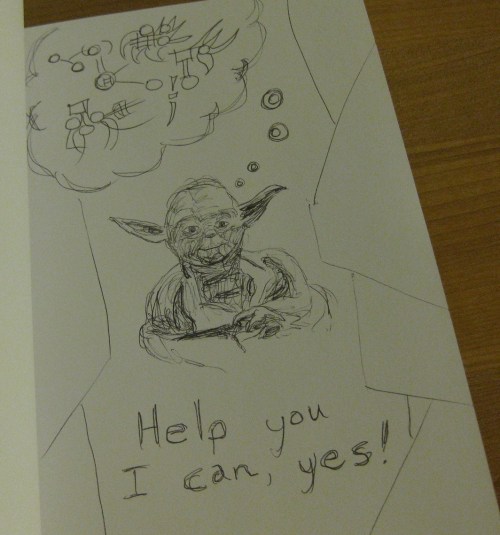 Help you
I can, yes!